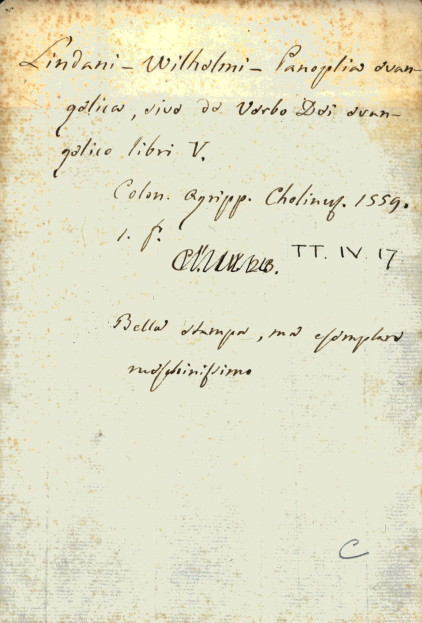 Lindani - Wilhelmi - Panoplia evan-
gelica, sive de Verbo Dei evan-
gelico libri V.
Colon. Agripp. Cholinus. 1559.
1. f.
TT. IV. 17
Bella stampa, ma esemplare
meschinissimo
C